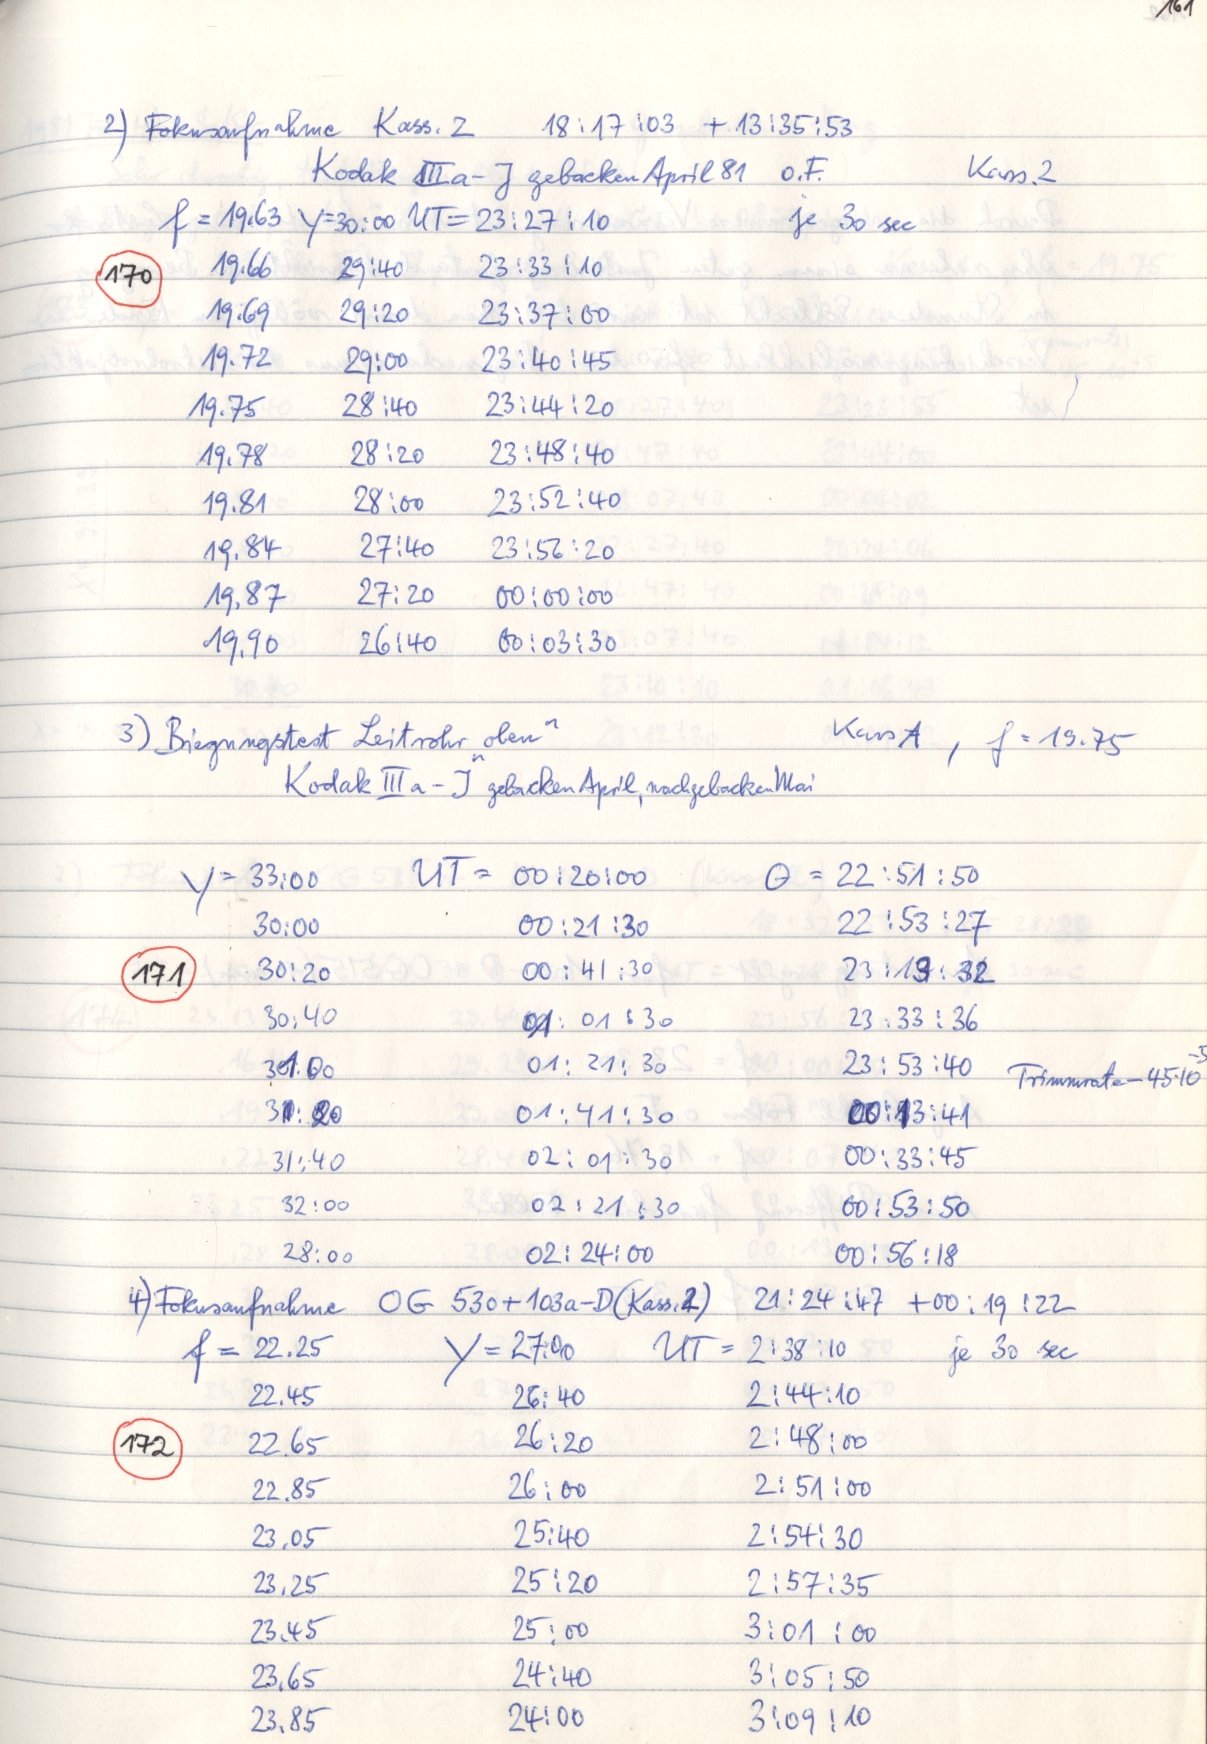 161
2) Fokusaufnahme Kass. 2 18:17:03 +13:35:53
Kodak IIIa-J gebacken April 81 o.F. Kass.2
f = 19.63 Y=30:00 UT= 23:27:10 je 30 sec
170 19.66 29:40 23:33:10
19.69 29:20 23:37:00
19.72 29:00 23:40:45
19.75 28:40 23:44:20
19.78 28:20 23:48:40
19.81 28:00 23:52:40
19.84 27:40 23:56:20
19.87 27:20 00:00:00
19.90 26:40 00:03:30
3) Biegungstest "Leitrohr oben" Kass A, f = 19.75
Kodak IIIa-J gebacken April, nachgebacken Mai
Y = 33:00 UT = 00:20:00 Θ = 22:51:50
30:00 00:21:30 22:53:27
171 30:20 00:41:30 23:13:32
30:40 01:01:30 23:33:36
31:00 01:21:30 23:53:40 Trimmrate -45·10⁻⁵
31:20 01:41:30 00:13:41
31:40 02:01:30 00:33:45
32:00 02:21:30 00:53:50
28:00 02:24:00 00:56:18
4) Fokusaufnahme OG 530+103a-D (Kass. ) 21:24:47 +00:19:22
f = 22.25 Y = 27:00 UT = 2:38:10 je 30 sec
22.45 26:40 2:44:10
172 22.65 26:20 2:48:00
22.85 26:00 2:51:00
23.05 25:40 2:54:30
23.25 25:20 2:57:35
23.45 25:00 3:01:00
23.65 24:40 3:05:50
23.85 24:00 3:09:10